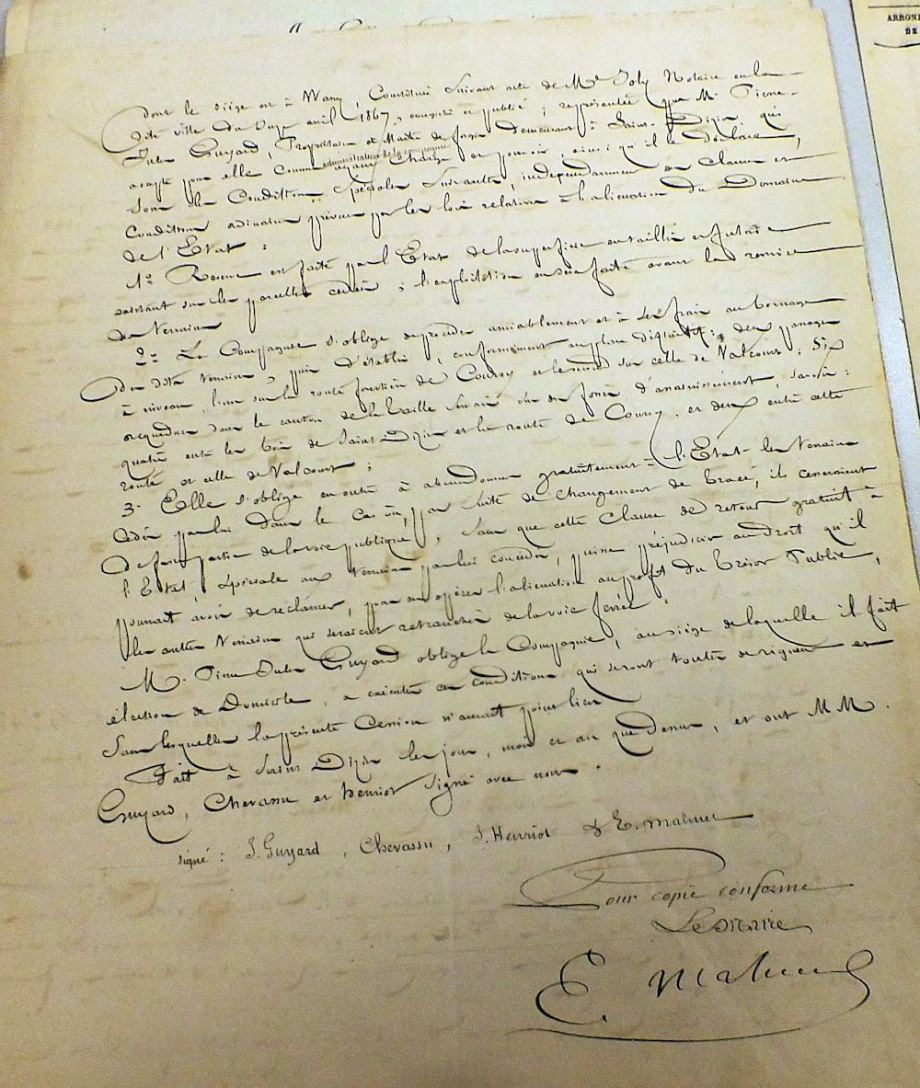 dont le siège est à Wassy, Constitué suivant acte de Me Joly Notaire en la
dite ville du onze avril 1867, enregistré et publié ; représentée par M. Pierre-
Jules Guyard, Propriétaire et Maître de forges demeurant à Saint-Dizier, qui
accepte pour elle comme administrateur de la compagnie ayant charge et pouvoir ainsi qu'il le déclare,
sous les Conditions Spéciales suivantes, indépendamment des Clauses et
Conditions ordinaires prévues par les lois relatives à l'aliénation du Domaine
de l'Etat :
1º Reserve est faite par l'Etat de la superficie en taillis et futaie
existant sur les parcelles cédées ; l'exploitation en sera faite avant la remise
des terrains
2º La Compagnie s'oblige de procéder amiablement et à ses frais au bornage
des dits terrains, puis d'établir, conformément au plan : deux passages
à niveau, l'un sur la route forestière de Couvry et le second sur celle de Valcourt ; Six
acqueducs dans le canton de la Haille savoir d'assainissement, savoir :
quatre entre les bois de Saint-Dizier et la route de Couvry, et deux entre cette
route et celle de Valcourt ;
3º Elle s'oblige en outre à abandonner gratuitement à l'Etat les terrains
cédés par lui dans le cas où, par suite de changement de tracé, ils cesseraient
de faire partie de la voie publique, sans que cette Clause de retour gratuit à
l'Etat, spéciale aux terrains par lui concédés, puisse préjudicier au droit qu'il
pourrait avoir de réclamer, pour en opérer l'aliénation au profit du Trésor Public,
les autres terrains qui seraient retranchés de la voie ferrée.
M. Pierre Jules Guyard oblige la Compagnie, au siège de laquelle il fait
élection de Domicile, à exécuter ces conditions qui seront toutes de rigueur et
sans lesquelles la présente Cession n'aurait point lieu
Fait à Saint Dizier les jour, mois et an que dessus, et ont MM.
Guyard, Chevassu et Henriot signé avec nous.
signé : J. Guyard, Chevassu, J. Henriot & E. Mahuet
Pour copie conforme
Le Maire
E. Mahuet